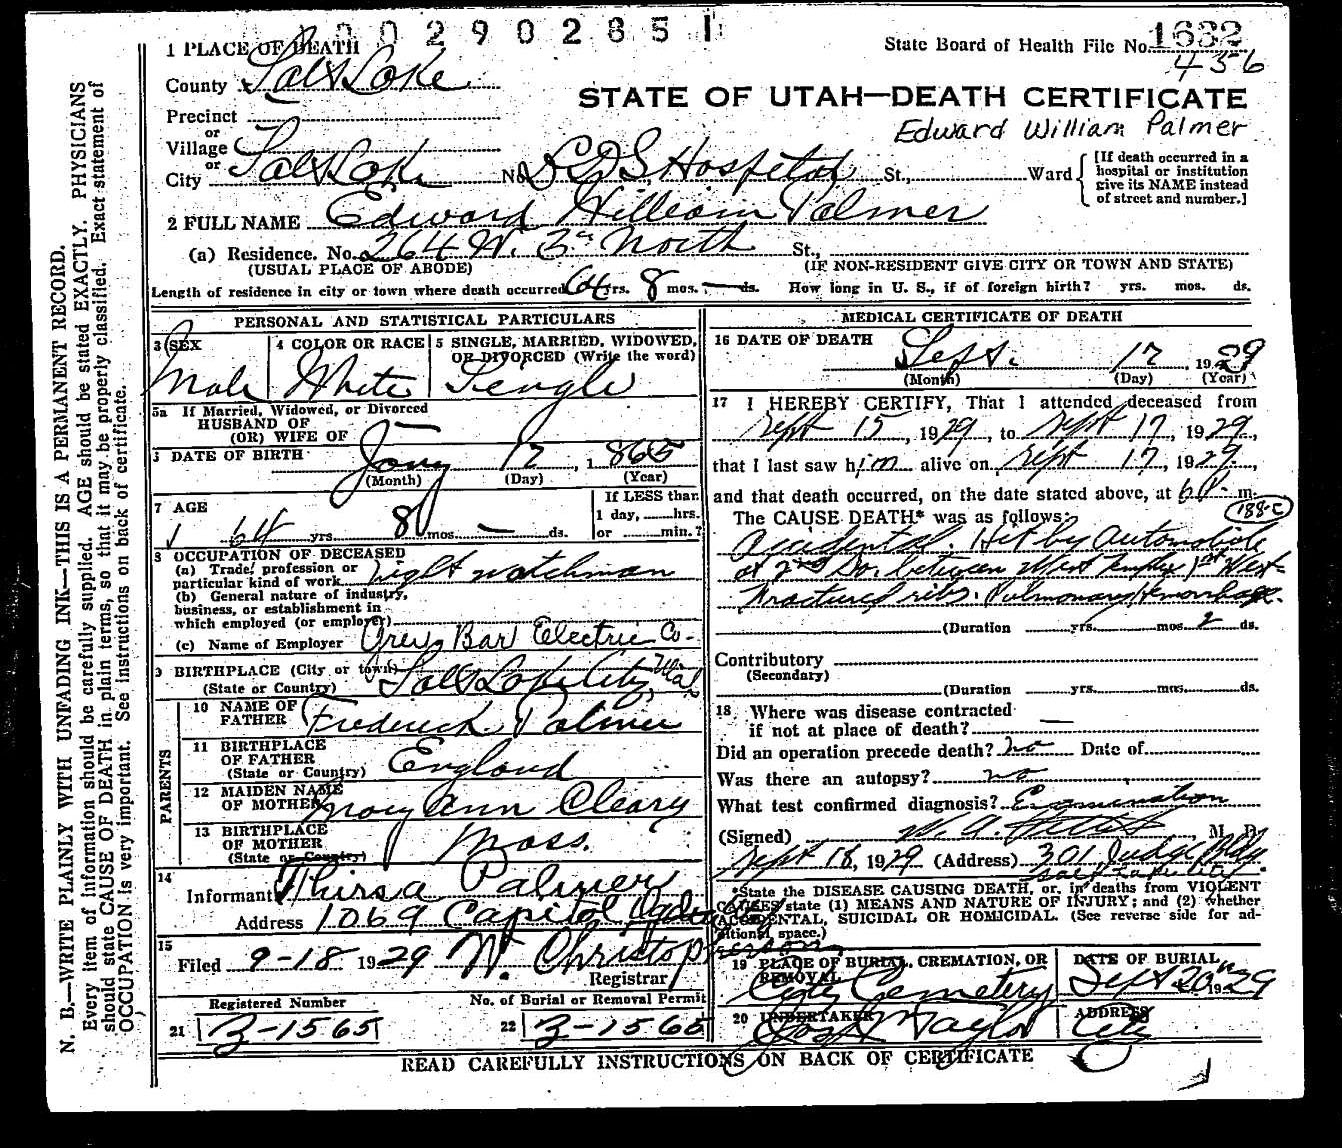 00290285 1
1632
State Board of Health File No.
456
1 PLACE OF DEATH
County Salt Lake
STATE OF UTAH—DEATH CERTIFICATE
Edward William Palmer
Precinct
or
Village
or
City Salt Lake No. LDS Hospital St., Ward
[If death occurred in a hospital or institution give its NAME instead of street and number.]
2 FULL NAME Edward William Palmer
(a) Residence. No. 264 W. 3rd North St.,
(USUAL PLACE OF ABODE) (IF NON-RESIDENT GIVE CITY OR TOWN AND STATE)
Length of residence in city or town where death occurred 64 yrs. 8 mos. — ds. How long in U. S., if of foreign birth? yrs. mos. ds.
PERSONAL AND STATISTICAL PARTICULARS
3 SEX
Male
4 COLOR OR RACE
White
5 SINGLE, MARRIED, WIDOWED, OR DIVORCED (Write the word)
Single
5a If Married, Widowed, or Divorced
HUSBAND OF
(OR) WIFE OF
DATE OF BIRTH Jany 17, 1865
(Month) (Day) (Year)
7 AGE
64 yrs 8 mos — ds.
If LESS than 1 day, hrs. or min.?
8 OCCUPATION OF DECEASED
(a) Trade, profession or
particular kind of work night watchman
(b) General nature of industry,
business, or establishment in
which employed (or employer)
(c) Name of Employer Bar Electric Co.
9 BIRTHPLACE (City or town) Salt Lake City, Utah
(State or Country)
PARENTS
10 NAME OF FATHER Frederick Palmer
11 BIRTHPLACE OF FATHER England
(State or Country)
12 MAIDEN NAME OF MOTHER Mary Ann Cleary
13 BIRTHPLACE OF MOTHER Mass.
(State or Country)
14
Informant Thirsa Palmer
Address 1069 Capitol
15
Filed 9-18 1929 W. Christopherson
Registrar
Registered Number
21 3-1565
No. of Burial or Removal Permit
22 3-1565
MEDICAL CERTIFICATE OF DEATH
16 DATE OF DEATH Sept. 17, 1929
(Month) (Day) (Year)
17 I HEREBY CERTIFY, That I attended deceased from
Sept 15, 1929, to Sept 17, 1929,
that I last saw him alive on Sept 17, 1929,
and that death occurred, on the date stated above, at 6 P. m.
The CAUSE DEATH* was as follows:
188-C
Accidental. Hit by Automobile
at 2nd So. between West Temple 1st West
Fractured ribs. Pulmonary Hemorrhage.
(Duration yrs. mos. 2 ds.
Contributory
(Secondary)
(Duration yrs. mos. ds.
18 Where was disease contracted
if not at place of death? —
Did an operation precede death? no Date of
Was there an autopsy? no
What test confirmed diagnosis? Examination
(Signed) W. A. M. D.
Sept 18, 1929 (Address) 301 Judge Bldg.
Salt Lake City.
*State the DISEASE CAUSING DEATH, or, in deaths from VIOLENT
CAUSES state (1) MEANS AND NATURE OF INJURY; and (2) whether
ACCIDENTAL, SUICIDAL OR HOMICIDAL. (See reverse side for ad-
ditional space.)
19 PLACE OF BURIAL, CREMATION, OR REMOVAL
City Cemetery
DATE OF BURIAL
Sept 20 1929
20 UNDERTAKER
Taylor
ADDRESS
City
READ CAREFULLY INSTRUCTIONS ON BACK OF CERTIFICATE
N. B.—WRITE PLAINLY WITH UNFADING INK—THIS IS A PERMANENT RECORD.
Every item of information should be carefully supplied. AGE should be stated EXACTLY. PHYSICIANS
should state CAUSE OF DEATH in plain terms, so that it may be properly classified. Exact statement of
OCCUPATION is very important. See instructions on back of certificate.